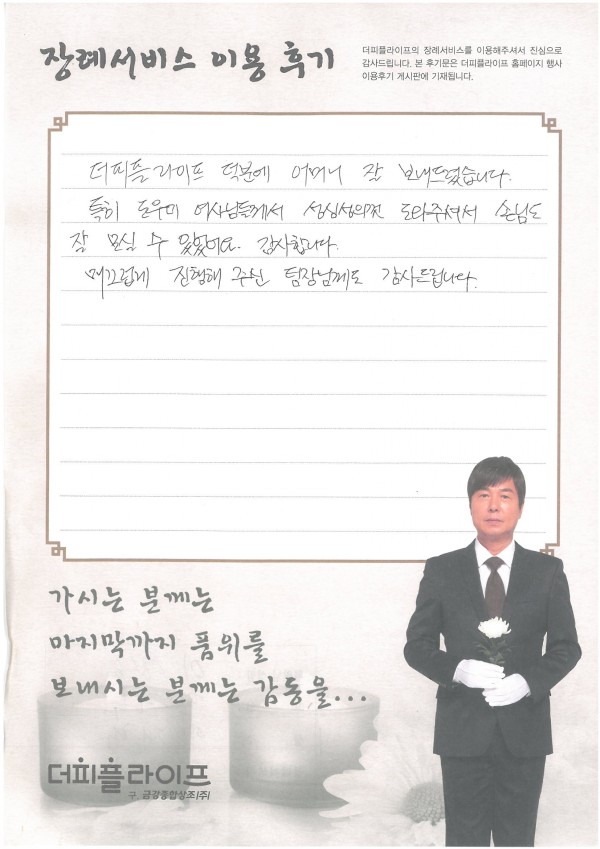 장례서비스 이용 후기
더피플라이프의 장례서비스를 이용해주셔서 진심으로
감사드립니다. 본 후기문은 더피플라이프 홈페이지 행사
이용후기 게시판에 기재됩니다.
더피플라이프 덕분에 어머니 잘 보내드렸습니다.
특히 도우미 여사님들께서 성심성의껏 도와주셔서 손님도
잘 모실 수 있었어요. 감사합니다.
매끄럽게 진행해 주신 팀장님께도 감사드립니다.
가시는 분께는
마지막까지 품위를
보내시는 분께는 감동을...
더피플라이프
구. 금강종합상조(주)